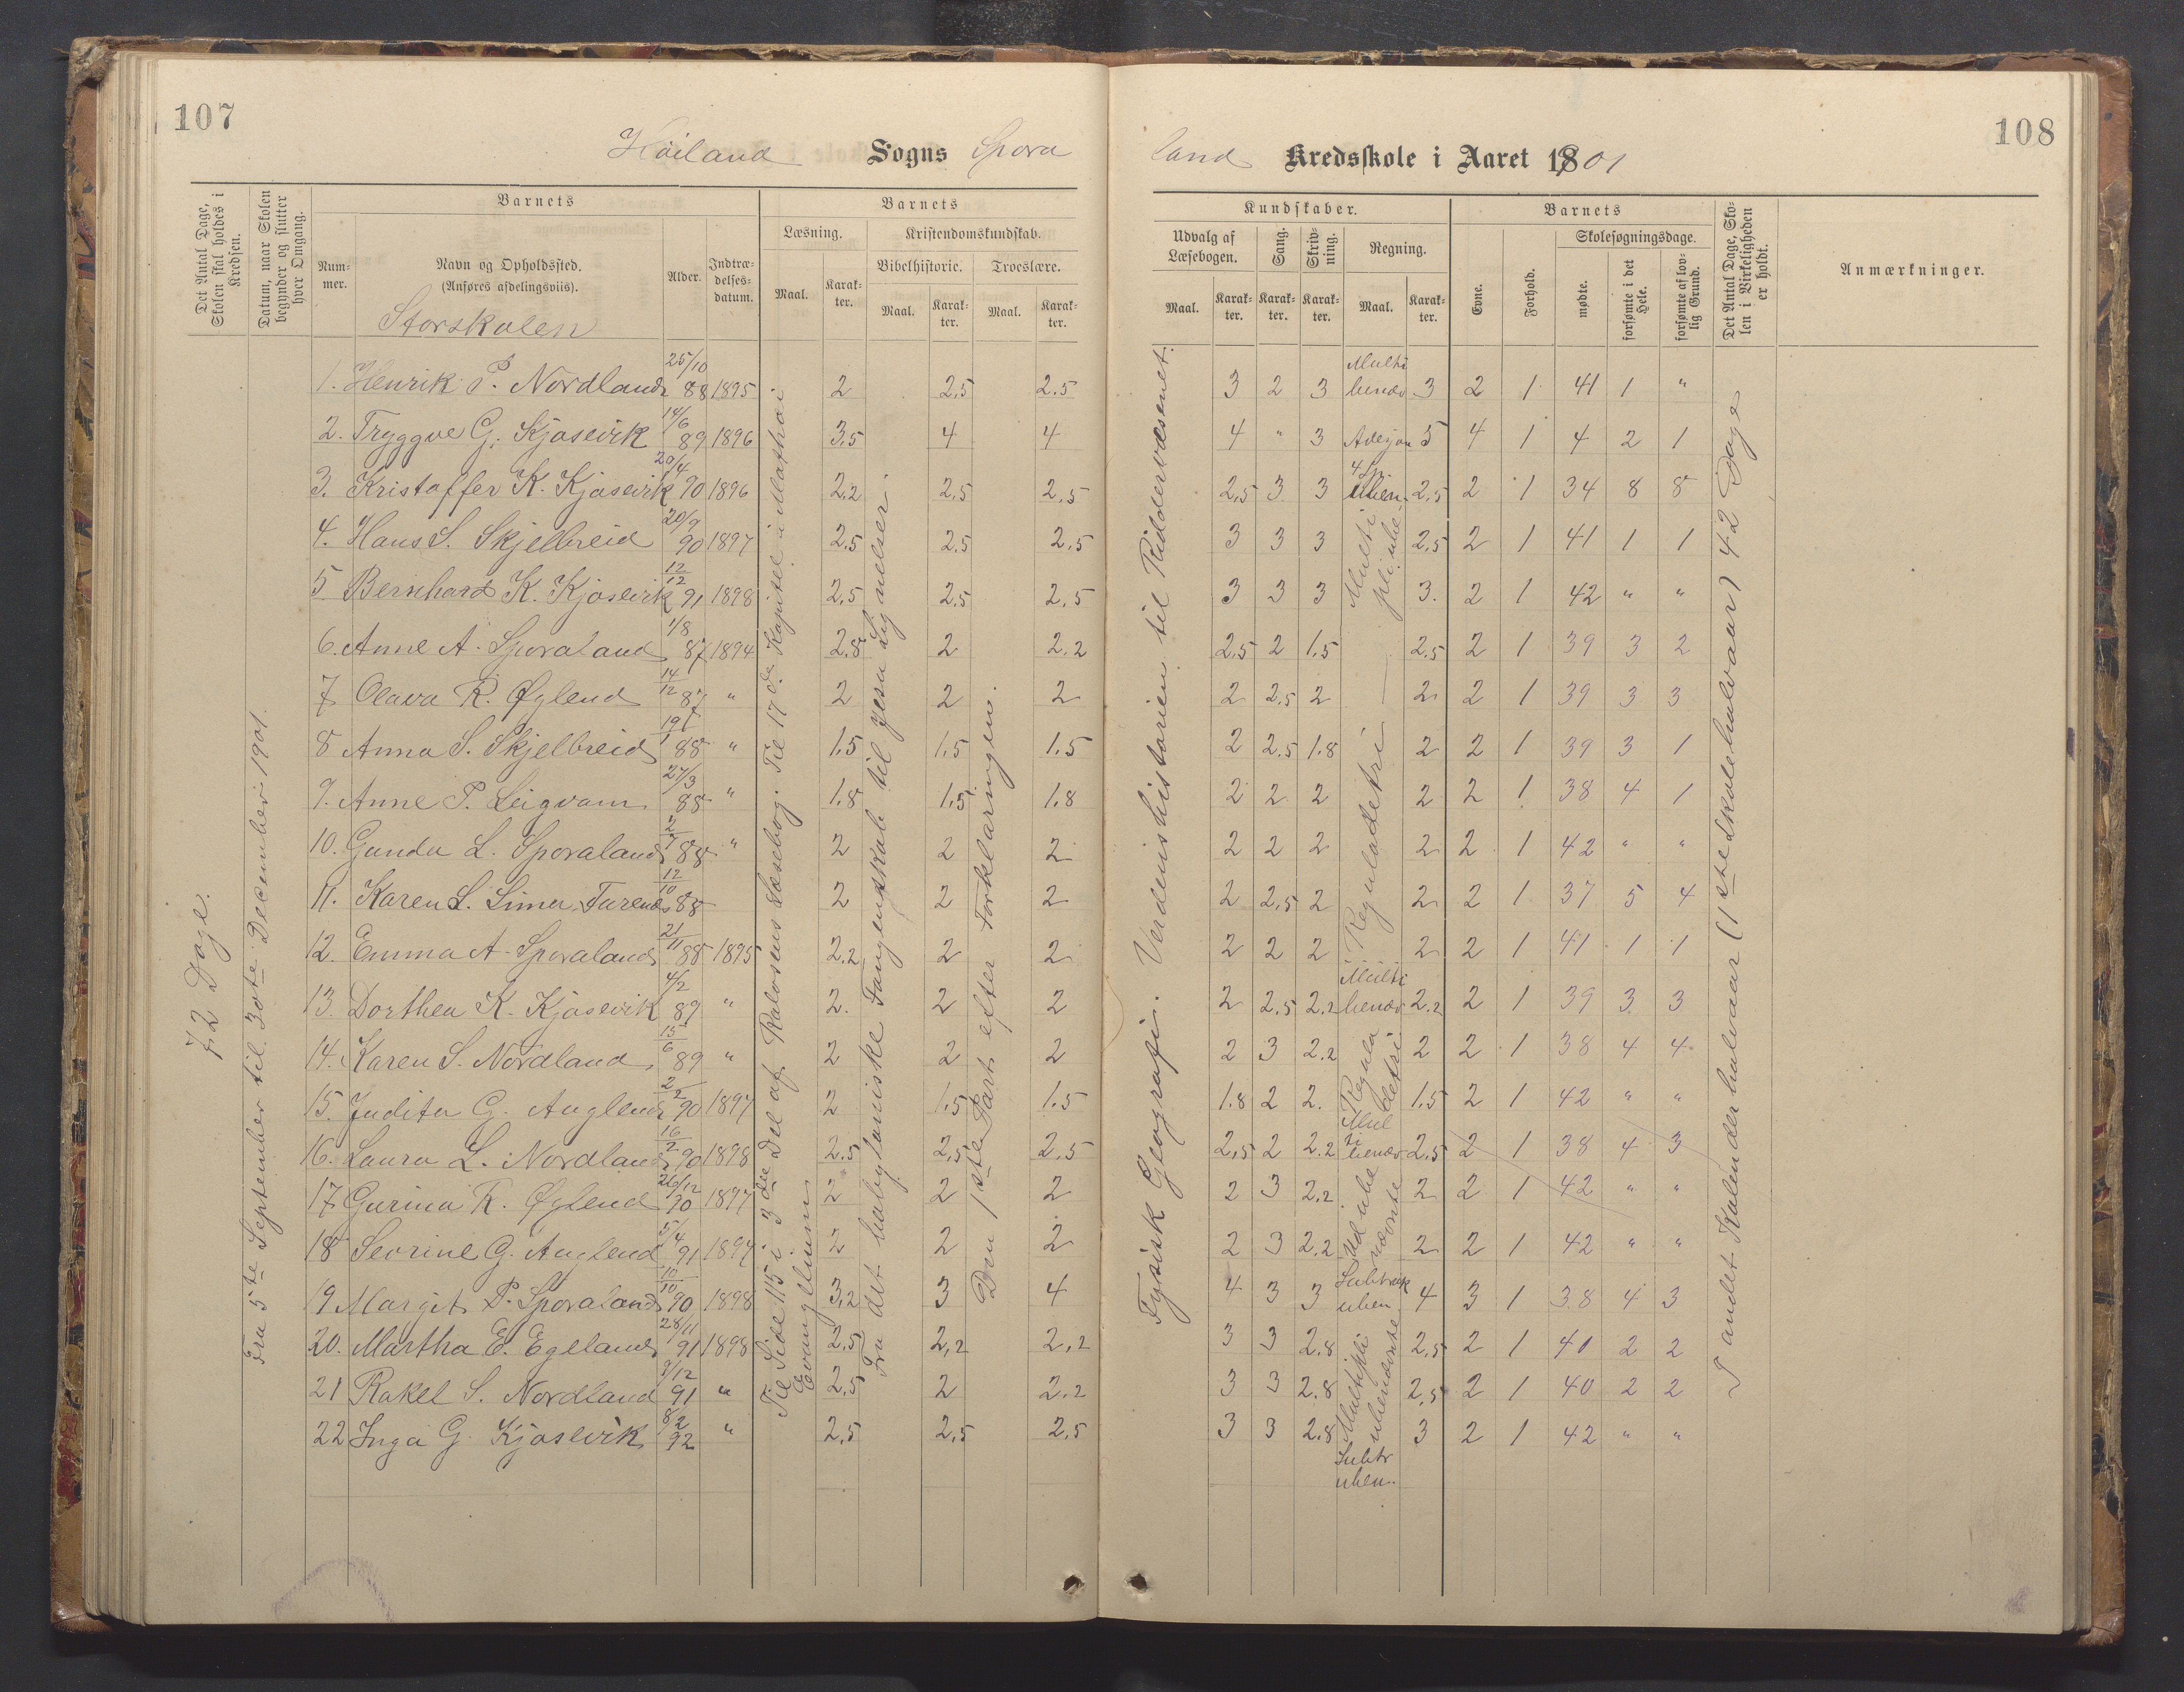 107
108
Høiland Sogns Spora
land Kredsskole i Aaret 1901
Det Antal Dage, Skolen skal holdes i Kredsen.
Datum, naar Skolen begynder og slutter hver Omgang.
Barnets
Num-mer.
Navn og Opholdssted.
(Anføres afdelingsviis).
Alder.
Indtræ-delses-datum.
Barnets
Læsning.
Maal.
Karak-ter.
Kristendomskundskab.
Bibelhistorie.
Maal.
Karak-ter.
Troeslære.
Maal.
Karak-ter.
Kundskaber.
Udvalg af Læsebogen.
Maal.
Karak-ter.
Sang.
Karak-ter.
Skriv-ning.
Karak-ter.
Regning.
Maal.
Karak-ter.
Barnets
Evne.
Forhold.
Skolesøgningsdage.
mødte.
forsømte i det Hele.
forsømte af lov-lig Grund.
Det Antal Dage, Sko-len i Virkeligheden er holdt.
Anmærkninger.
Storskolen
72 Dage.
Fra 5te September til 30te December 1901.
Til Side 115 i 3die Del af Rolvsens Læsebog. Til 17de Kapitel i Mathæi Evangelium
Fra det babyloniske Fangenskab til Jesu Lignelser.
Den 1ste Part efter Forklaringen.
Fysisk Geografi. Verdenshistorien til Ridderværsenet.
I andet Kalenderhalvaar (1ste Skolehalvaar) 42 Dage
1. Henrik P. Nordland 25/10 88 1895 2 2,5 2.5 3 2 3 Multi benæv 3 2 1 41 1 "
2. Tryggve G. Kjosevik 14/6 89 1896 3,5 4 4 4 " 3 5 4 1 4 2 1
3. Kristoffer K. Kjosevik 20/4 90 1896 2,2 2,5 2,5 2,5 3 3 2,5 2 1 34 8 8
4. Hans S. Skjelbreid 20/9 90 1897 2,5 2,5 2,5 3 3 3 2,5 2 1 41 1 1
5 Bernhard K. Kjosevik 12/12 91 1898 2,5 2,5 2,5 3 3 3 3. 2 1 42 " "
6. Anne A. Sporaland 1/8 87 1894 2.8 2 2,2 2,5 2 1.5 2.5 2 1 39 3 2
7 Olava R. Øglend 14/12 87 " 2 2 2 2 2,5 2 2 2 1 39 3 3
8 Anna S. Skjelbreid 88 " 1.5 1,5 1.5 2 2,5 1.8 2 2 1 39 3 1
9. Anne P. Leigvam 27/3 88 " 1.8 1,5 1.8 2 2 2 2 2 1 38 4 1
10. Gunda L. Sporaland 88 " 2 2 2 2 2 2 2 2 1 42 " "
11. Karen L. 12/10 88 2 2 2 2 2,5 2 2 2 1 37 5 4
12. Emma A. Sporaland 21/11 88 1895 2.2 2 2 2 2 2 Reguladetri 2 2 1 41 1 1
13. Dorthea K. Kjosevik 4/2 89 " 2. 2 2 2 2,5 2.2 Multi benæv 2.2 2 1 39 3 3
14. Karen S. Nordland 15/6 89 " 2 2 2 2 3 2.2 Regula detri 2 2 1 38 4 4
15. Judita G. Auglend 2/2 90 1897 2 1,5 1.5 1.8 2 2. 1.5 2 1 42 " "
16. Laura L. Nordland 16/2 90 1898 2.5 2,5 2.5 2,5 2 2.2 Mul ti benæv 2,5 2 1 38 4 3
17 Gurina R. Øglend 26/12 90 1897 2 2 2 2 3 2,2 2 2 1 42 " "
18 Sevrine G. Auglend 5/4 91 1897 2 2 2 2 3 2,2 2 2 1 42 " "
19 Margit P. Sporaland 10/10 90 1898 3,2 3 4 4 3 3 Subtrak uben 4 3 1 38 4 3
20. Martha E. Egeland 28/11 91 1898 2,5 2,2 2,2 3 3 2.8 Multipli ubenævnte 2,5 2 1 40 2 2
21 Rakel S. Nordland 9/12 91 " 2,5 2 2,2 3 3 2.8 2,5 2 1 40 2 2
22 Inga G Kjosevik 8/2 92 " 2,5 2,5 2,5 3 3 2.8 Subtr uben. 3 2 1 42 " "